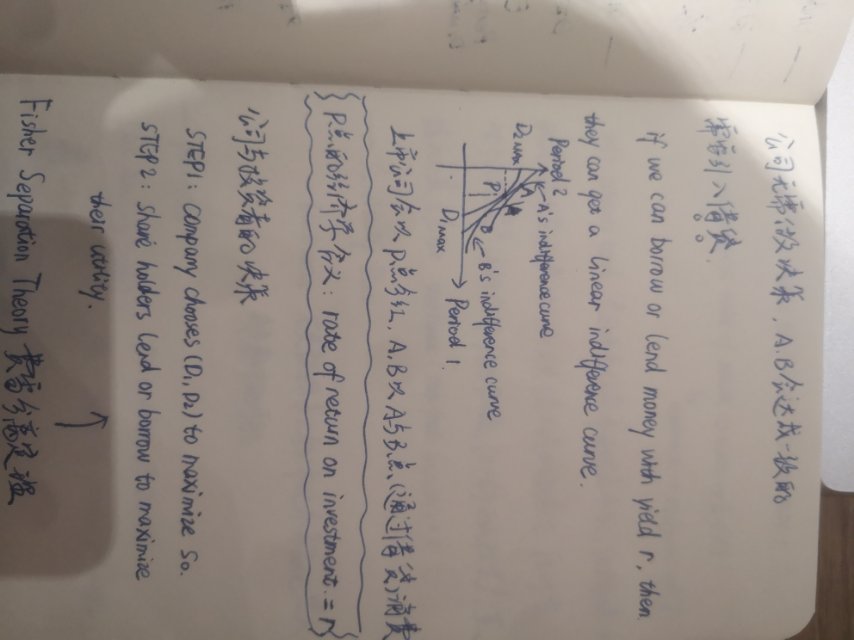 公司无法做决策，A.B会达成一致的
需要引入借贷。
if we can borrow or lend money with yield r, then
they can get a linear indifference curve.
Period 2
A's indifference curve
D₂ max
P
B
B's indifference curve
D₁ max
Period 1.
上市公司会以P点分红，A.B以A与B点(通过借贷)消费
P点的经济学含义：rate of return on investment = r
公司与投资者的决策
STEP1: Company chooses (D₁, D₂) to maximize S₀.
STEP2: share holders lend or borrow to maximize
their utility.
Fisher Separation Theory 费雪分离定理